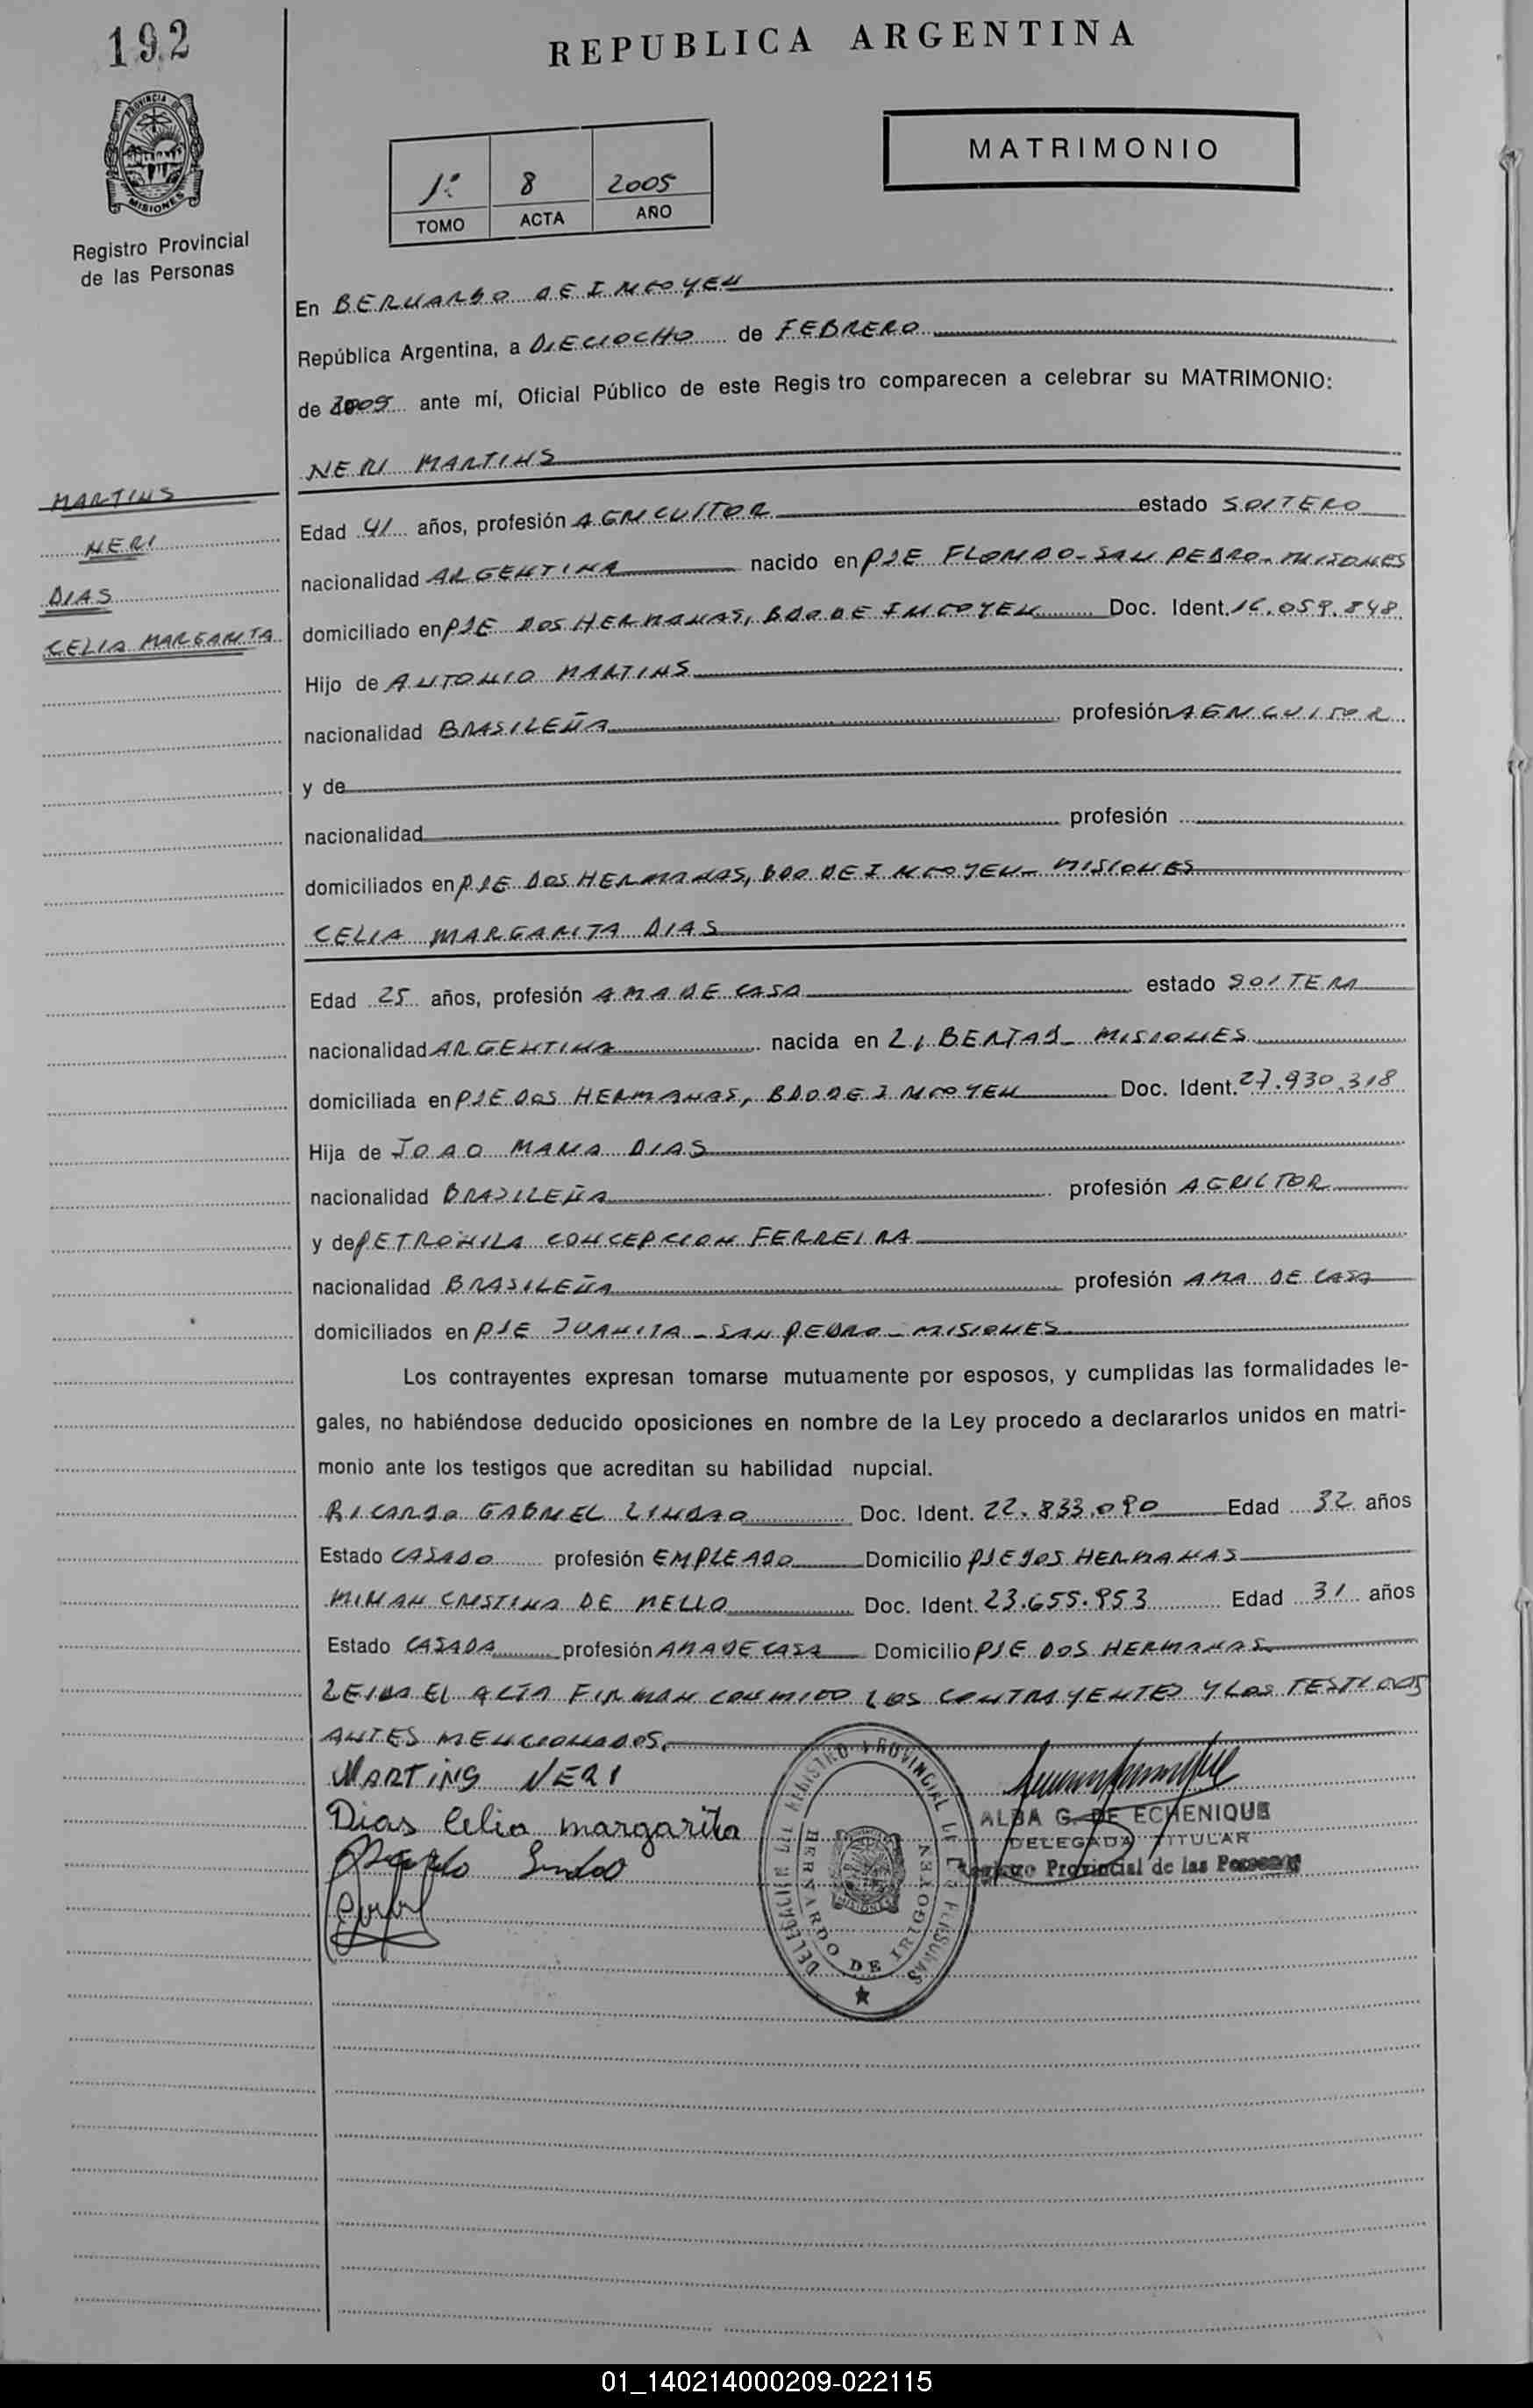 192
REPUBLICA ARGENTINA
PROVINCIA DE
MISIONES
Registro Provincial
de las Personas
MATRIMONIO
1º 8 2005
TOMO ACTA AÑO
En BERNARDO DE IRIGOYEN
República Argentina, a DIECIOCHO de FEBRERO
de 2005 ante mí, Oficial Público de este Regis tro comparecen a celebrar su MATRIMONIO:
NERI MARTINS
MARTINS
NERI
DIAS
CELIA MARGARITA
Edad 41 años, profesión AGRICULTOR estado SOLTERO
nacionalidad ARGENTINA nacido en PJE FLORIDO-SAN PEDRO-MISIONES
domiciliado en PJE DOS HERMANAS, BDO DE IRIGOYEN Doc. Ident. 16.059.848
Hijo de ANTONIO MARTINS
nacionalidad BRASILEÑA profesión AGRICULTOR
y de
nacionalidad profesión
domiciliados en PJE DOS HERMANAS, BDO DE IRIGOYEN- MISIONES
CELIA MARGARITA DIAS
Edad 25 años, profesión AMA DE CASA estado SOLTERA
nacionalidad ARGENTINA nacida en LIBERTAD- MISIONES
domiciliada en PJE DOS HERMANAS, BDO DE IRIGOYEN Doc. Ident. 27.930.318
Hija de JOAO MARIA DIAS
nacionalidad BRASILEÑA profesión AGRICTOR
y de PETRONILA CONCEPCION FERREIRA
nacionalidad BRASILEÑA profesión AMA DE CASA
domiciliados en PJE JUANITA - SAN PEDRO - MISIONES
Los contrayentes expresan tomarse mutuamente por esposos, y cumplidas las formalidades le-
gales, no habiéndose deducido oposiciones en nombre de la Ley procedo a declararlos unidos en matri-
monio ante los testigos que acreditan su habilidad nupcial.
RICARDO GABRIEL LINDAO Doc. Ident. 22.833.090 Edad 32 años
Estado CASADO profesión EMPLEADO Domicilio PJE DOS HERMANAS
MIRIAN CRISTINA DE MELLO Doc. Ident. 23.655.953 Edad 31 años
Estado CASADA profesión AMA DE CASA Domicilio PJE DOS HERMANAS
LEIDA EL ACTA FIRMAN CONMIGO LOS CONTRAYENTES Y LOS TESTIGOS
ANTES MENCIONADOS.
MARTINS NERI
Dias Celia margarita
ALBA G. DE ECHENIQUE
DELEGADA TITULAR
Registro Provincial de las Personas
DELEGACION DEL REGISTRO PROVINCIAL DE LAS PERSONAS
BERNARDO DE IRIGOYEN
MISIONES
01_140214000209-022115